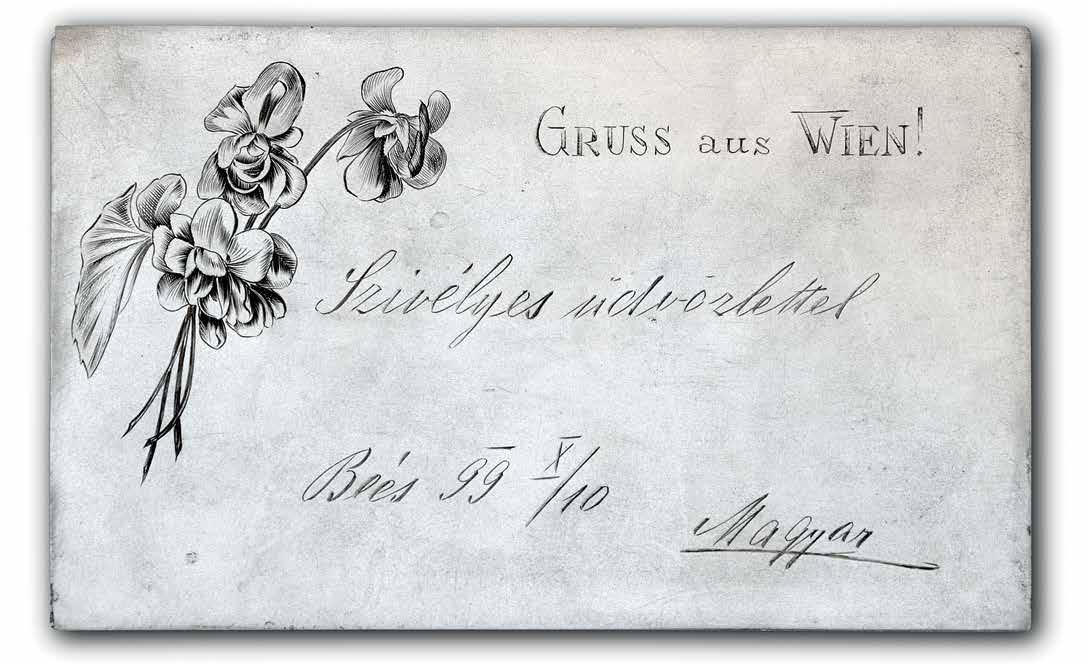 GRUSS aus WIEN!
Szivélyes üdvözlettel
Bécs 99 X/10
Magyar